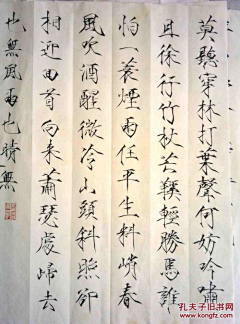 莫聽穿林打葉聲何妨吟嘯
且徐行竹杖芒鞵輕勝馬誰
怕一蓑煙雨任平生料峭春
風吹酒醒微冷山頭斜照卻
相迎回首向來蕭瑟處歸去
也無風雨也晴無